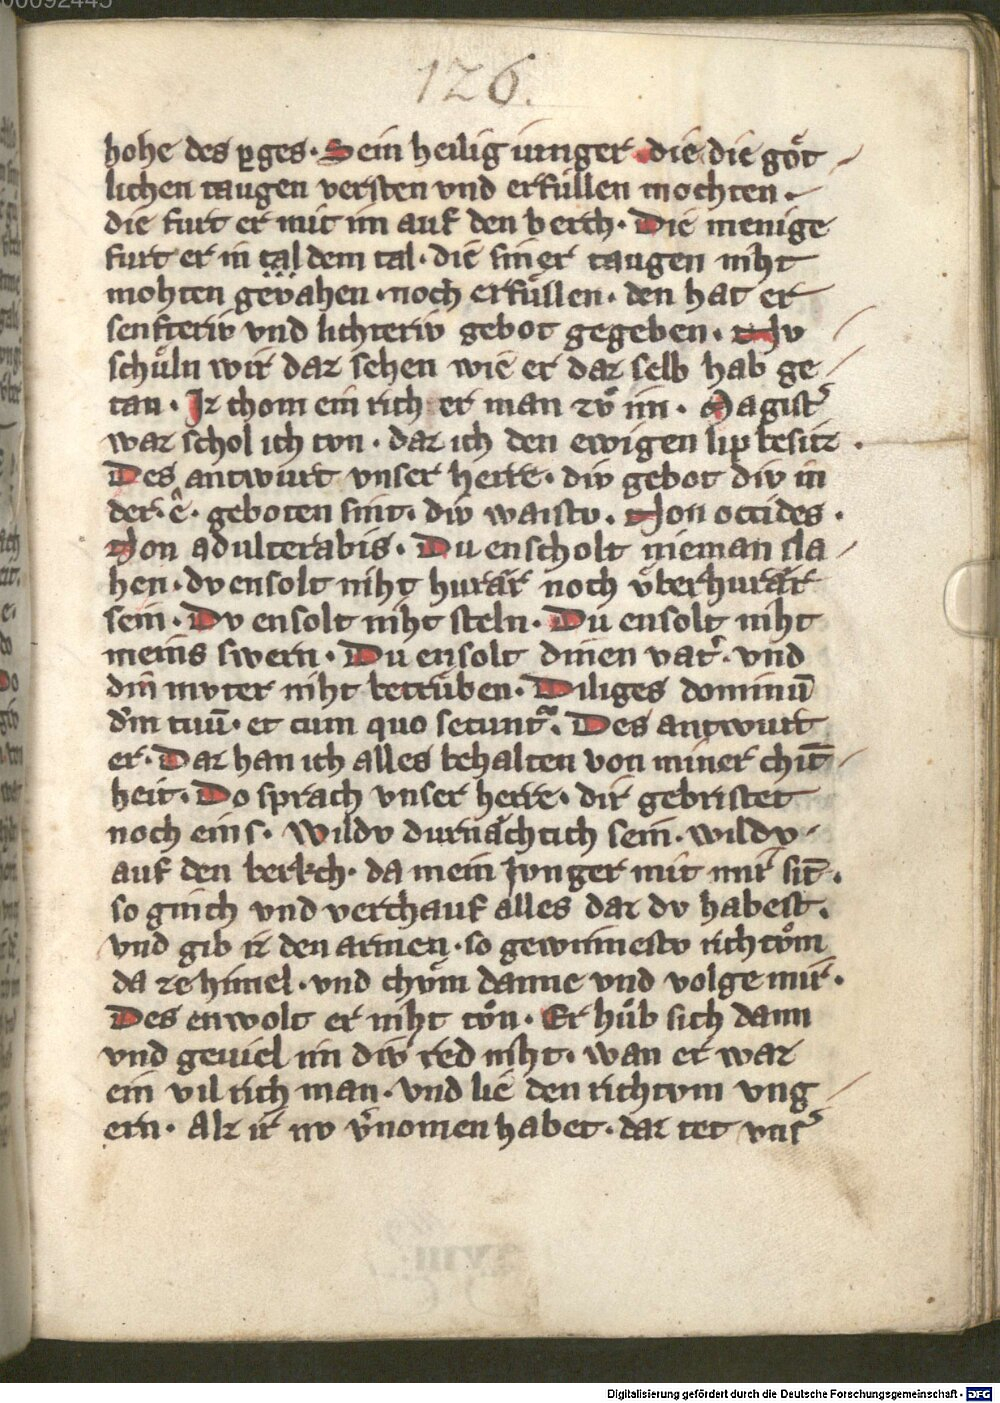 00092445
126.
hohe des p̱ges. Sein heilig iunger. die die goͤt
lichen taugen versten vnd erfüllen mochten.
die furt er mit im auf den berch. Die menige
furt er in tal dem tal. die siner taugen niht
mohten gevahen. noch erfuͤllen. den hat er
senfteriv vnd lichteriv gebot gegeben. Nv
schuͤln wir daz sehen wie er daz selb hab ge
tan. Ir chom ein rich er man zvͦ im. Magist͛
waz schol ich tvn. daz ich den ewigen lip besitz.
Des antwurt vnser herre. div gebot div in
der. ê. geboten sint. div waistv. Non occides.
Non adulterabis. Du enscholt nieman sla
hen. dv ensolt niht hurår noch v̊berhurår
sein. Dv ensolt niht steln. Du ensolt niht
meins swern. Du ensolt dinen vat͛. vnd
din mvter niht betrüben. Diliges dominū
dm̄ tuū. et cum quo secunt᷑. Des antwurt
er. Daz han ich alles behalten von miner chīt
heit. Do sprach vnser herre. dir gebristet
noch eins. Wildv durnåchtich sein. wildv
auf den berkch. da mein Jvnger mit mir sīt.
so ginch vnd verchauf alles daz dv habest.
vnd gib iz den armen. so gewinnestv richtvͦm
da ze himel. vnd chvͦm danne vnd volge mir.
Des enwolt er niht tvͦn. Er huͦb sich dann
vnd geuiel im div red niht. wan er waz
ein vil rich man. vnd lie den richtvm vng
ern. Alz ir nv v͛nomen habet. daz tet vns͛
Digitalisierung gefördert durch die Deutsche Forschungsgemeinschaft - DFG